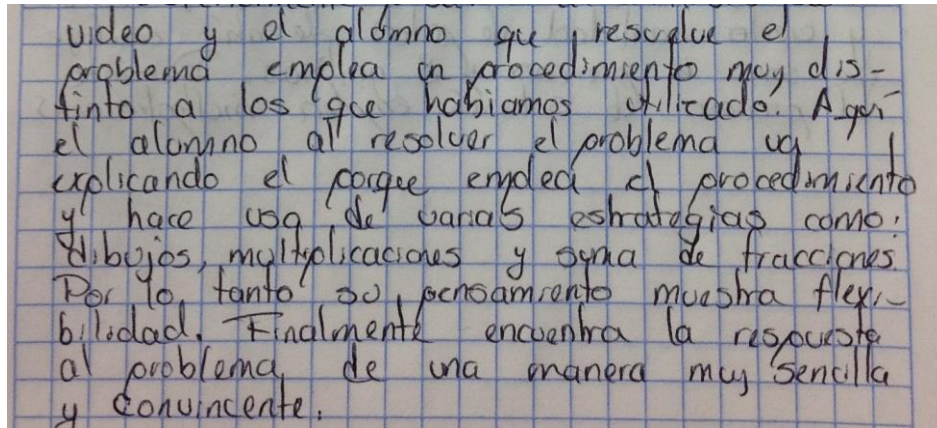 video y el alumno que resuelve el
problema emplea un procedimiento muy dis-
tinto a los que habiamos utilizado. Aquí
el alumno al resolver el problema va
explicando el porque emplea el procedimiento
y hace uso de varias estrategias como:
dibujos, multiplicaciones y suma de fracciones.
Por lo tanto su pensamiento muestra flexi-
bilidad. Finalmente encuentra la respuesta
al problema de una manera muy sencilla
y convincente.